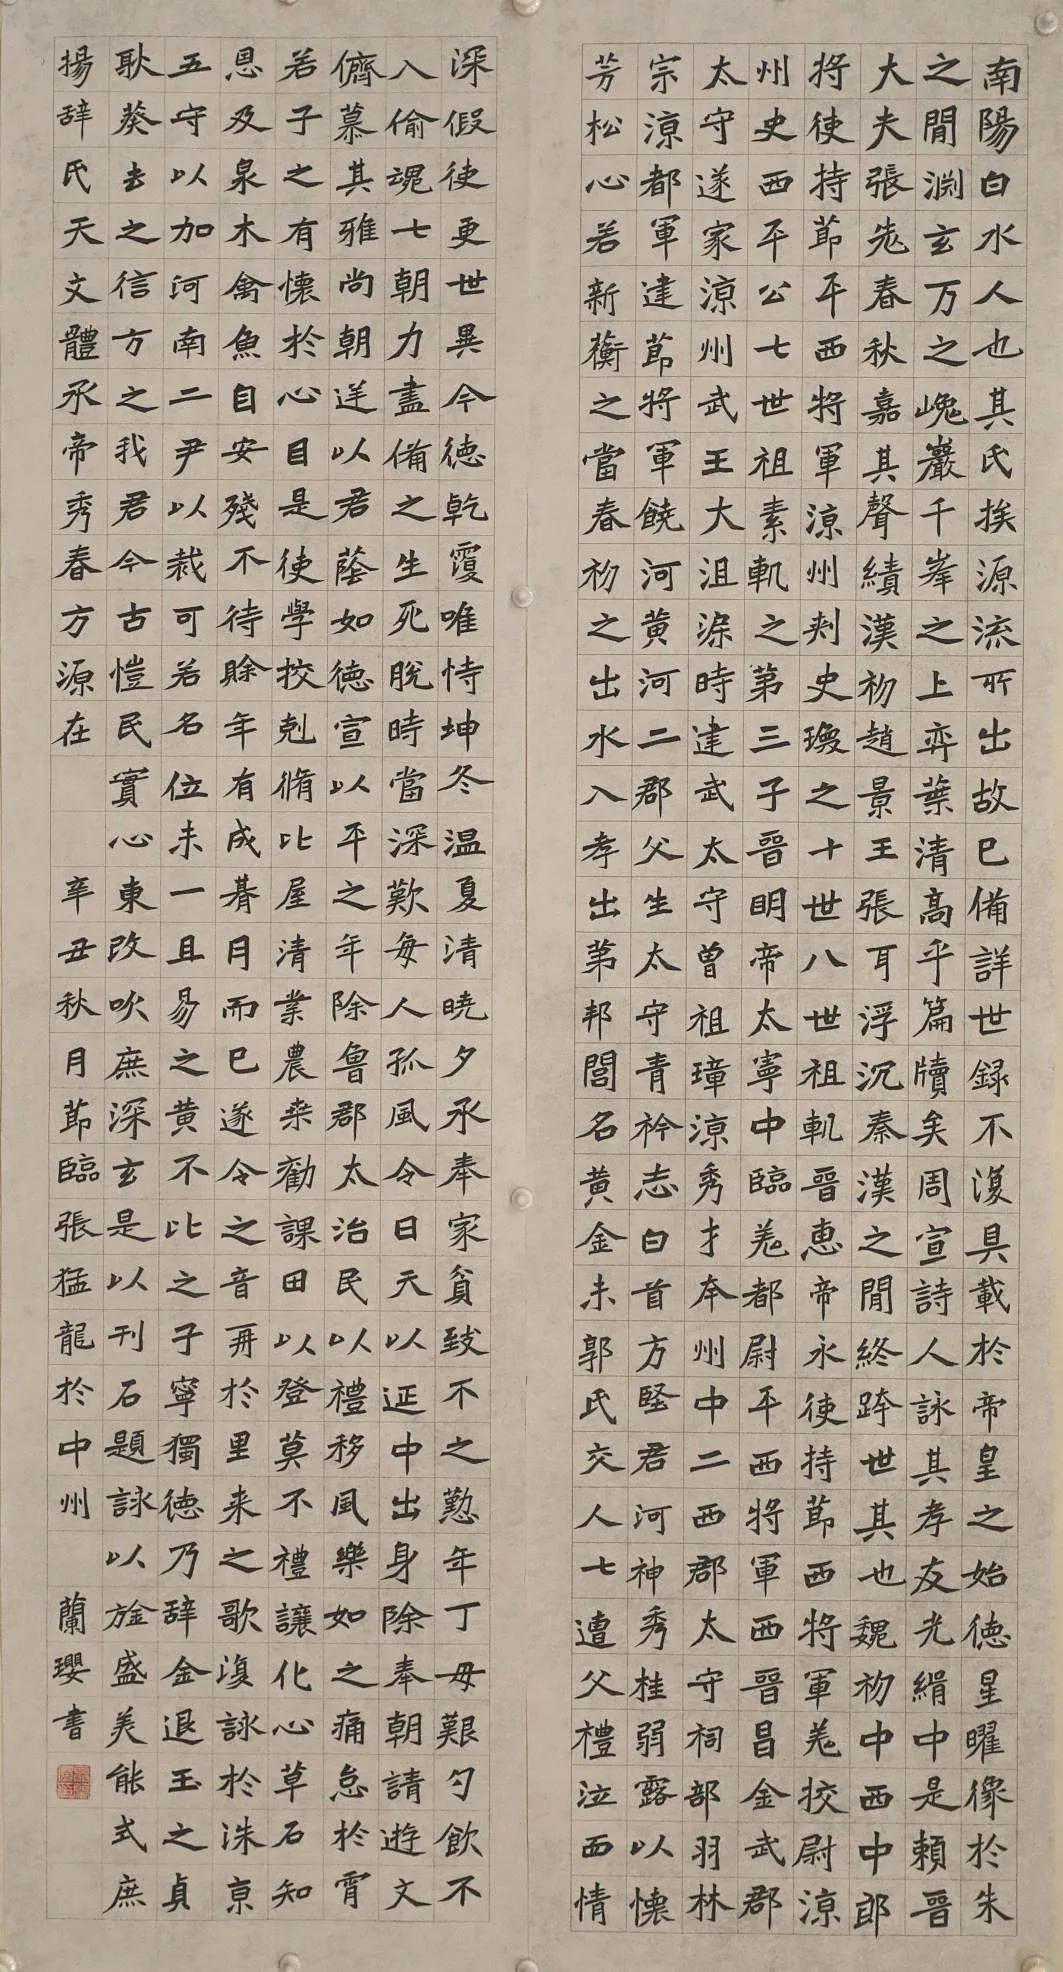 南陽白水人也其氏挨源流所出故已備詳世録不復具載於帝皇之始德星曜像於朱
之閒渊玄万之巉巖千峯之上弈葉清高乎篇牘矣周宣詩人詠其孝友光緝中是賴晉
大夫張老春秋嘉其聲績漢初趙景王張耳浮沉秦漢之閒終跨世其也魏初中西中郎
將使持節平西將軍涼州刺史瓊之十世八世祖軌晉惠帝永使持節西將軍羌挍尉涼
州史西平公七世祖素軌之第三子晉明帝太寧中臨羌都尉平西將軍西晋昌金武郡
太守遂家涼州武王大沮渠時建武太守曾祖璋涼秀才本州中二西郡太守祠部羽林
宗涼都軍建節將軍饒河黄河二郡父生太守青衿志白首方堅君河神秀桂弱露以懷
芳松心若新蘅之當春初之出水入孝出第邦閭名黄金未郭氏交人七遭父禮泣西情
深假使更世異今德乾覆唯恃坤冬温夏清曉夕承奉家貧致不之懃年丁母艱勺飲不
入偷魂七朝力盡備之生死脫時當深歎每人孤風令日天以延中出身除奉朝請遊文
儕慕其雅尚朝送以君蔭如德宣以平之年除魯郡太治民以禮移風樂如之痛怠於霄
若子之有懷於心目是使學挍剋脩比屋清業農桒勸課田以登莫不禮讓化心草石知
恩及泉木禽魚自安殘不待賖年有成朞月而已遂令之音再於里来之歌復詠於洙京
五守以加河南二尹以裁可若名位未一且易之黄不比之子寧獨德乃辞金退玉之貞
耿葵去之信方之我君今古愷民實心東改吹庶深玄是以刊石題詠以旍盛美能式庶
揚辞氏天文體承帝秀春方源在
辛丑秋月節臨張猛龍於中州 蘭瓔書